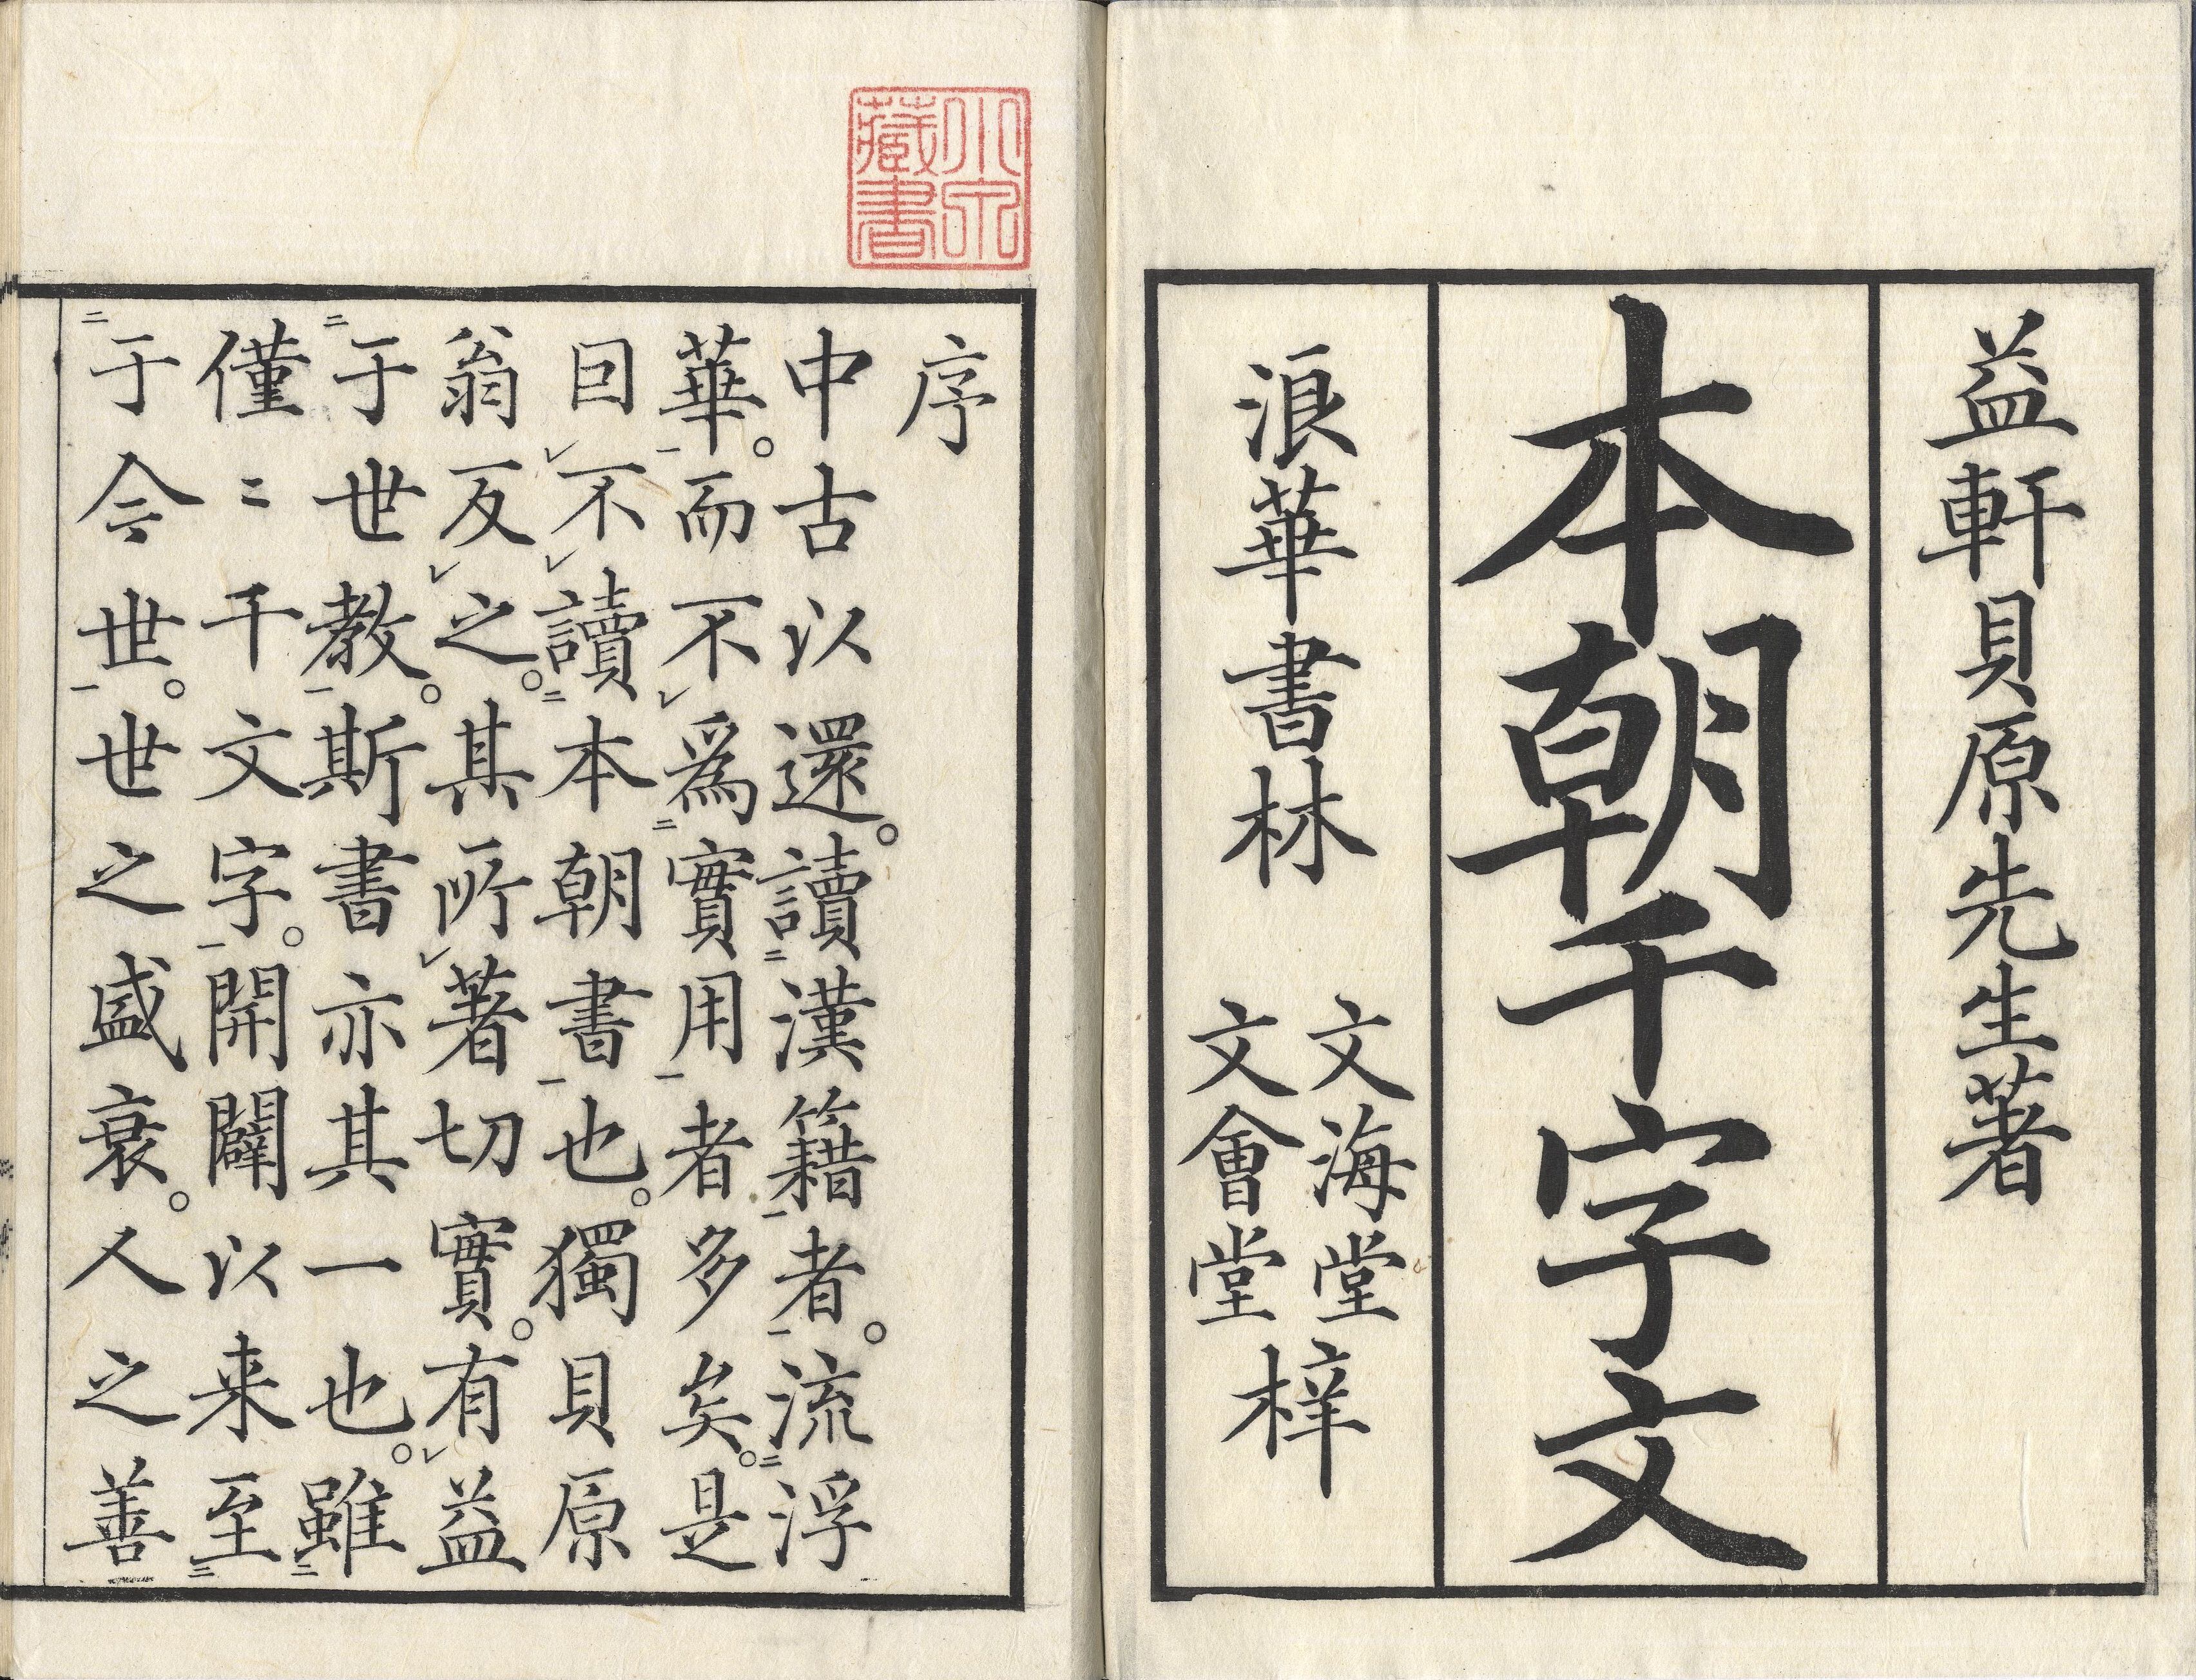 益軒貝原先生著
本朝千字文
浪華書林
文海堂
文會堂
梓
小泉
藏書
序
中古以還。讀漢籍者。流浮
華。而不爲實用者多矣。是
囙不讀本朝書也。獨貝原
翁反之。其所著切實。有益
于世教。斯書亦其一也。雖
僅〻千文字。開闢以来至
于今世。世之盛衰。人之善